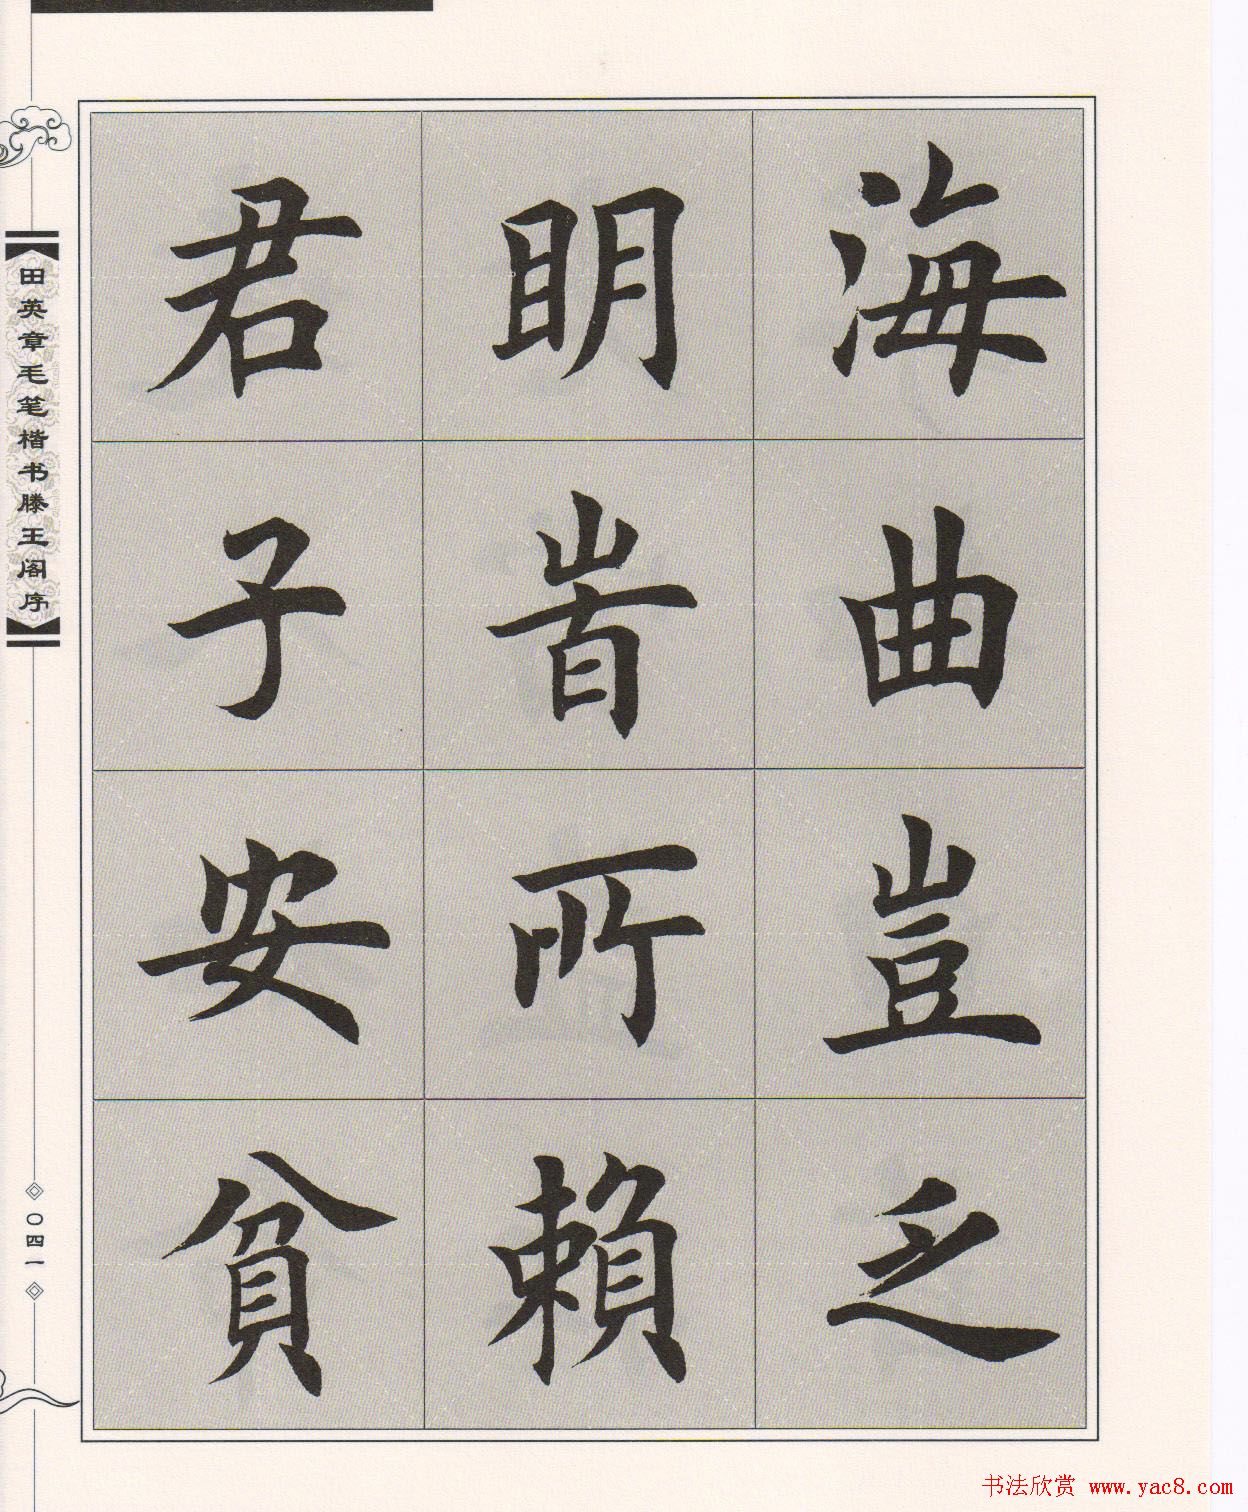 海曲豈乏
明旹所賴
君子安貧
田英章毛笔楷书滕王阁序
〇四一
书法欣赏 www.yac8.com